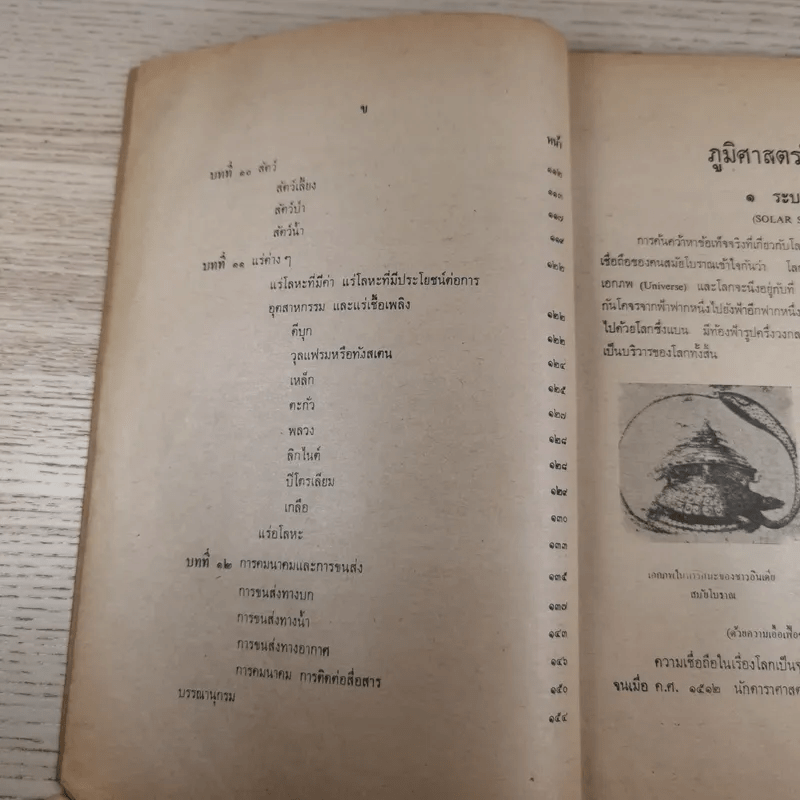 ข
หน้า
บทที่ ๑๐ สัตว์ ๑๑๒
สัตว์เลี้ยง ๑๑๓
สัตว์ป่า ๑๑๗
สัตว์น้ำ ๑๑๙
บทที่ ๑๑ แร่ต่าง ๆ ๑๒๒
แร่โลหะที่มีค่า แร่โลหะที่มีประโยชน์ต่อการ
อุตสาหกรรม และแร่เชื้อเพลิง ๑๒๒
ดีบุก ๑๒๒
วุลแฟรมหรือทังสเตน ๑๒๔
เหล็ก ๑๒๕
ตะกั่ว ๑๒๗
พลวง ๑๒๘
ลิกไนต์ ๑๒๘
ปิโตรเลียม ๑๒๙
เกลือ ๑๓๐
แร่อโลหะ ๑๓๓
บทที่ ๑๒ การคมนาคมและการขนส่ง ๑๓๕
การขนส่งทางบก ๑๓๗
การขนส่งทางน้ำ ๑๔๓
การขนส่งทางอากาศ ๑๔๖
การคมนาคม การติดต่อสื่อสาร ๑๕๐
บรรณานุกรม ๑๕๔
ภูมิศาสตร์
๑ ระบ
(SOLAR S
การค้นคว้าหาข้อเท็จจริงที่เกี่ยวกับโล
เชื่อถือของคนสมัยโบราณเข้าใจกันว่า โล
เอกภพ (Universe) และโลกจะนิ่งอยู่กับที่
กันโคจรจากฟ้าฟากหนึ่งไปยังฟ้าอีกฟากหนึ่ง
ไปด้วยโลกซึ่งแบน มีท้องฟ้ารูปครึ่งวงกล
เป็นบริวารของโลกทั้งสิ้น
เอกภพในทรรศนะของชาวอินเดีย
สมัยโบราณ
(ด้วยความเอื้อเฟื้อข
ความเชื่อถือในเรื่องโลกเป็น
จนเมื่อ ค.ศ. ๑๕๑๒ นักดาราศาสต